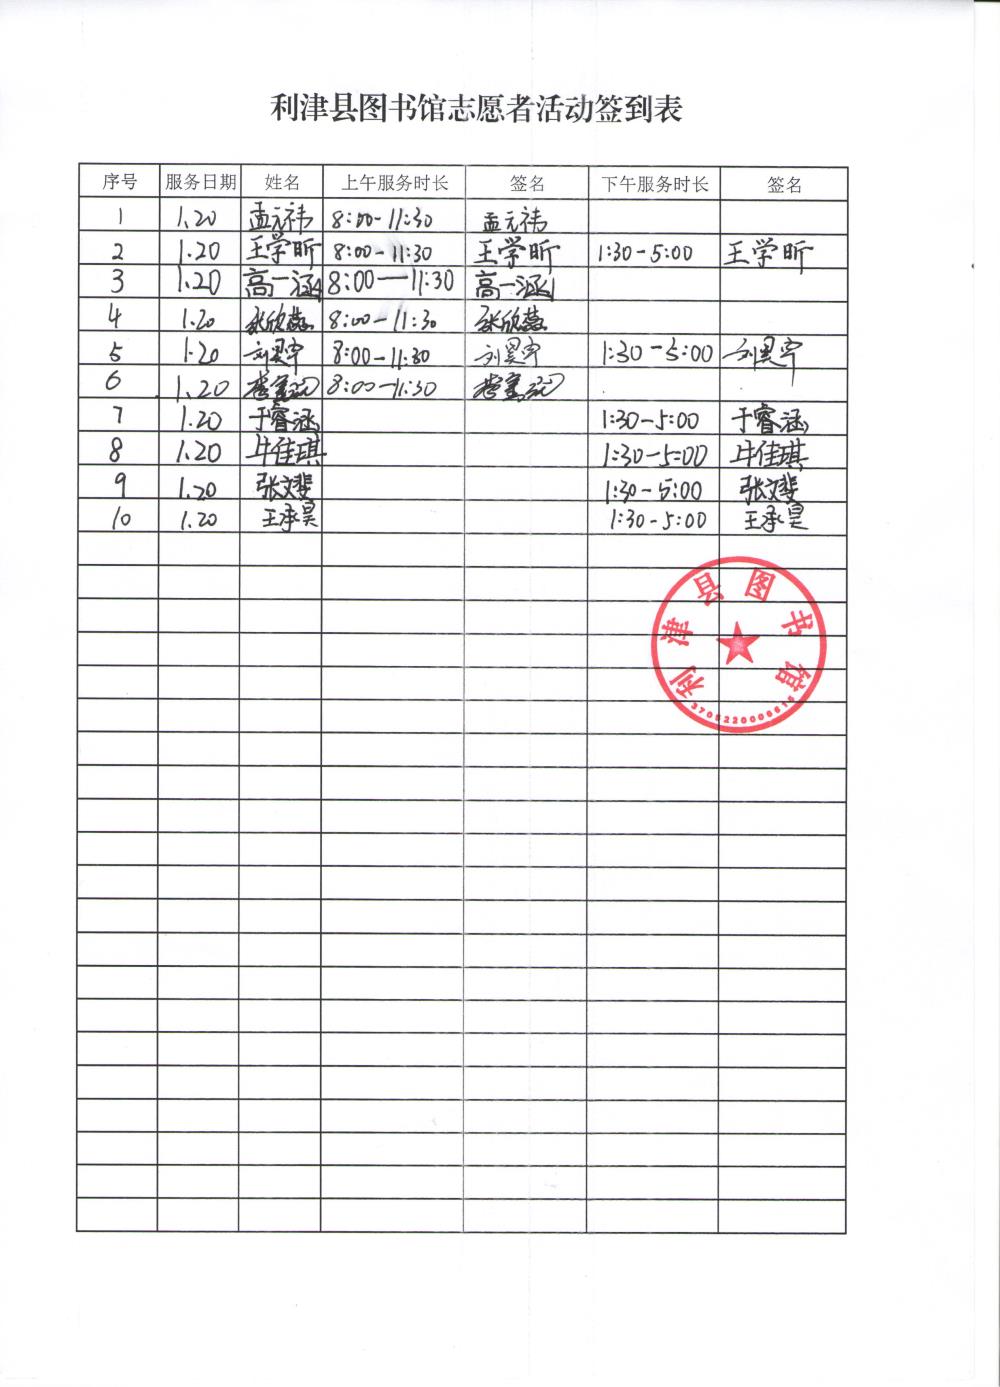 利津县图书馆志愿者活动签到表
序号 服务日期 姓名 上午服务时长 签名 下午服务时长 签名
1 1.20 孟元祎 8:00-11:30 孟元祎
2 1.20 王学昕 8:00-11:30 王学昕 1:30-5:00 王学昕
3 1.20 高一涵 8:00—11:30 高一涵
4 1.20 张欣蕊 8:00-11:30 张欣蕊
5 1.20 刘昊宇 8:00-11:30 刘昊宇 1:30-5:00 刘昊宇
6 1.20 8:00-11:30
7 1.20 于睿涵 1:30-5:00 于睿涵
8 1.20 牛佳琪 1:30-5:00 牛佳琪
9 1.20 张文斐 1:30-5:00 张文斐
10 1.20 王承昊 1:30-5:00 王承昊
利津县图书馆